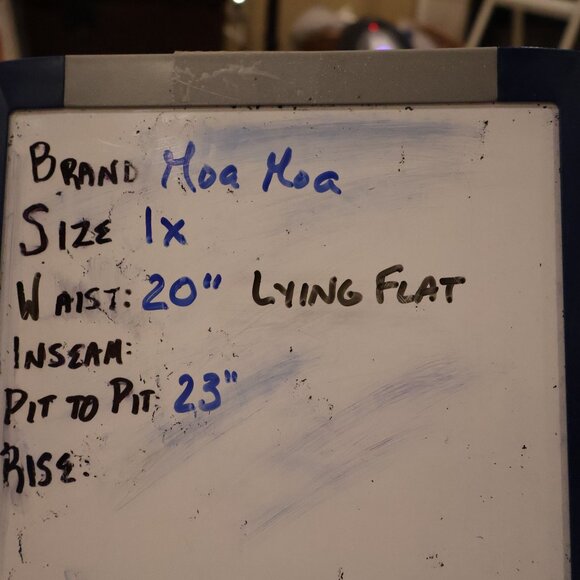 BRAND Moa Moa
SIZE 1x
WAIST: 20" LYING FLAT
INSEAM:
PIT TO PIT: 23"
RISE: